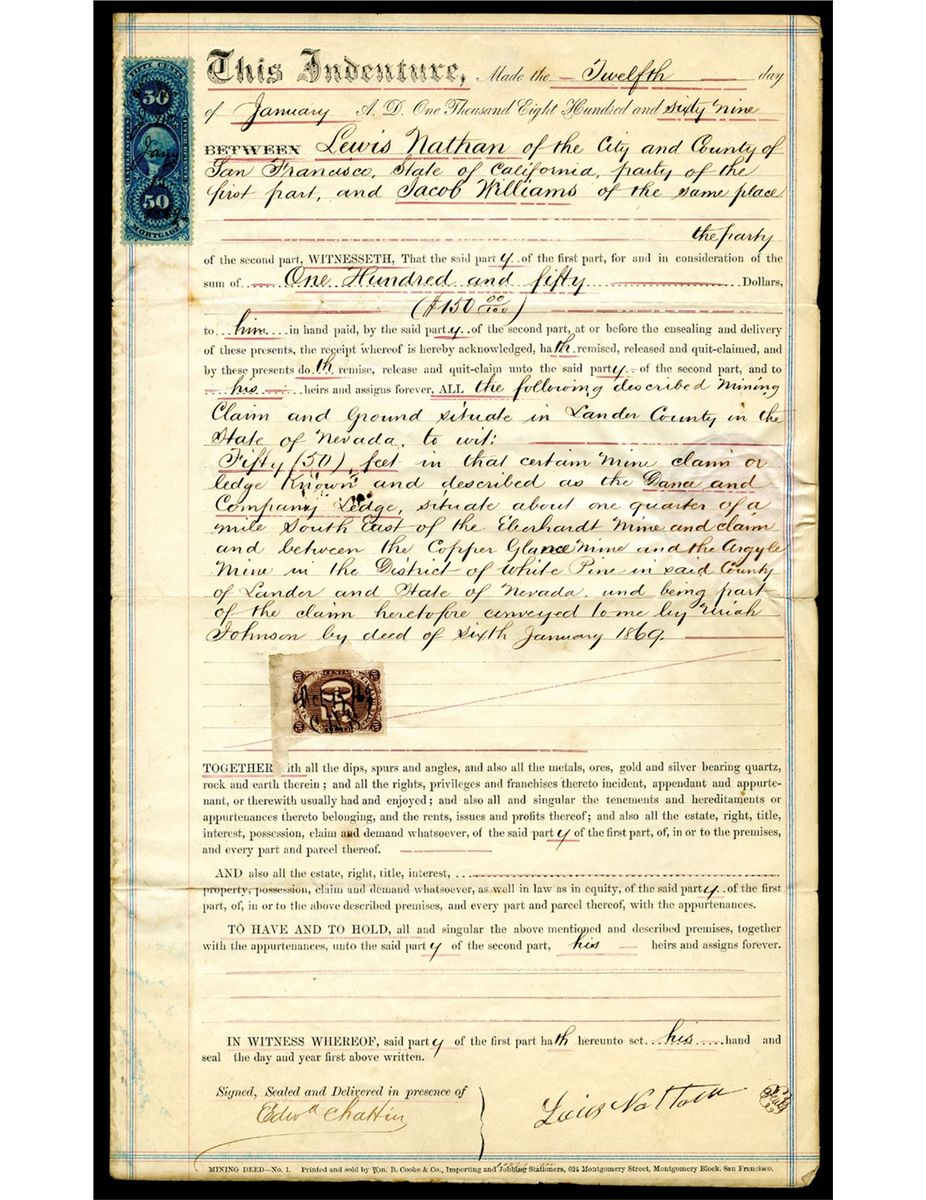 This Indenture, Made the Twelfth day
of January A. D. One Thousand Eight Hundred and sixty nine
BETWEEN Lewis Nathan of the City and County of
San Francisco, State of California, party of the
first part, and Jacob Williams of the same place
the party
of the second part, WITNESSETH, That the said party of the first part, for and in consideration of the
sum of One Hundred and fifty Dollars,
($150 00/100)
to him in hand paid, by the said party of the second part, at or before the ensealing and delivery
of these presents, the receipt whereof is hereby acknowledged, hath remised, released and quit-claimed, and
by these presents doth remise, release and quit-claim unto the said party of the second part, and to
his heirs and assigns forever, ALL the following described Mining
Claim and Ground situate in Lander County in the
State of Nevada, to wit:
Fifty (50) feet in that certain Mine claim or
ledge Known and described as the Dana and
Company Ledge, situate about one quarter of a
mile South East of the Eberhardt Mine and claim
and between the Copper Glance Mine and the Argyle
Mine in the District of White Pine in said County
of Lander and State of Nevada, and being part
of the claim heretofore conveyed to me by Uriah
Johnson by deed of sixth January 1869.
TOGETHER with all the dips, spurs and angles, and also all the metals, ores, gold and silver bearing quartz,
rock and earth therein; and all the rights, privileges and franchises thereto incident, appendant and appurte-
nant, or therewith usually had and enjoyed; and also all and singular the tenements and hereditaments or
appurtenances thereto belonging, and the rents, issues and profits thereof; and also all the estate, right, title,
interest, possession, claim and demand whatsoever, of the said party of the first part, of, in or to the premises,
and every part and parcel thereof.
AND also all the estate, right, title, interest,
property, possession, claim and demand whatsoever, as well in law as in equity, of the said party of the first
part, of, in or to the above described premises, and every part and parcel thereof, with the appurtenances.
TO HAVE AND TO HOLD, all and singular the above mentioned and described premises, together
with the appurtenances, unto the said party of the second part, his heirs and assigns forever.
IN WITNESS WHEREOF, said party of the first part hath hereunto set his hand and
seal the day and year first above written.
Signed, Sealed and Delivered in presence of
Edwd Chattin
Lewis Nathan
MINING DEED—No. 1. Printed and sold by Wm. B. Cooke & Co., Importing and Jobbing Stationers, 624 Montgomery Street, Montgomery Block, San Francisco.
FIFTY CENTS
50
INTER REVENUE
50
MORTGAGE
CENTS